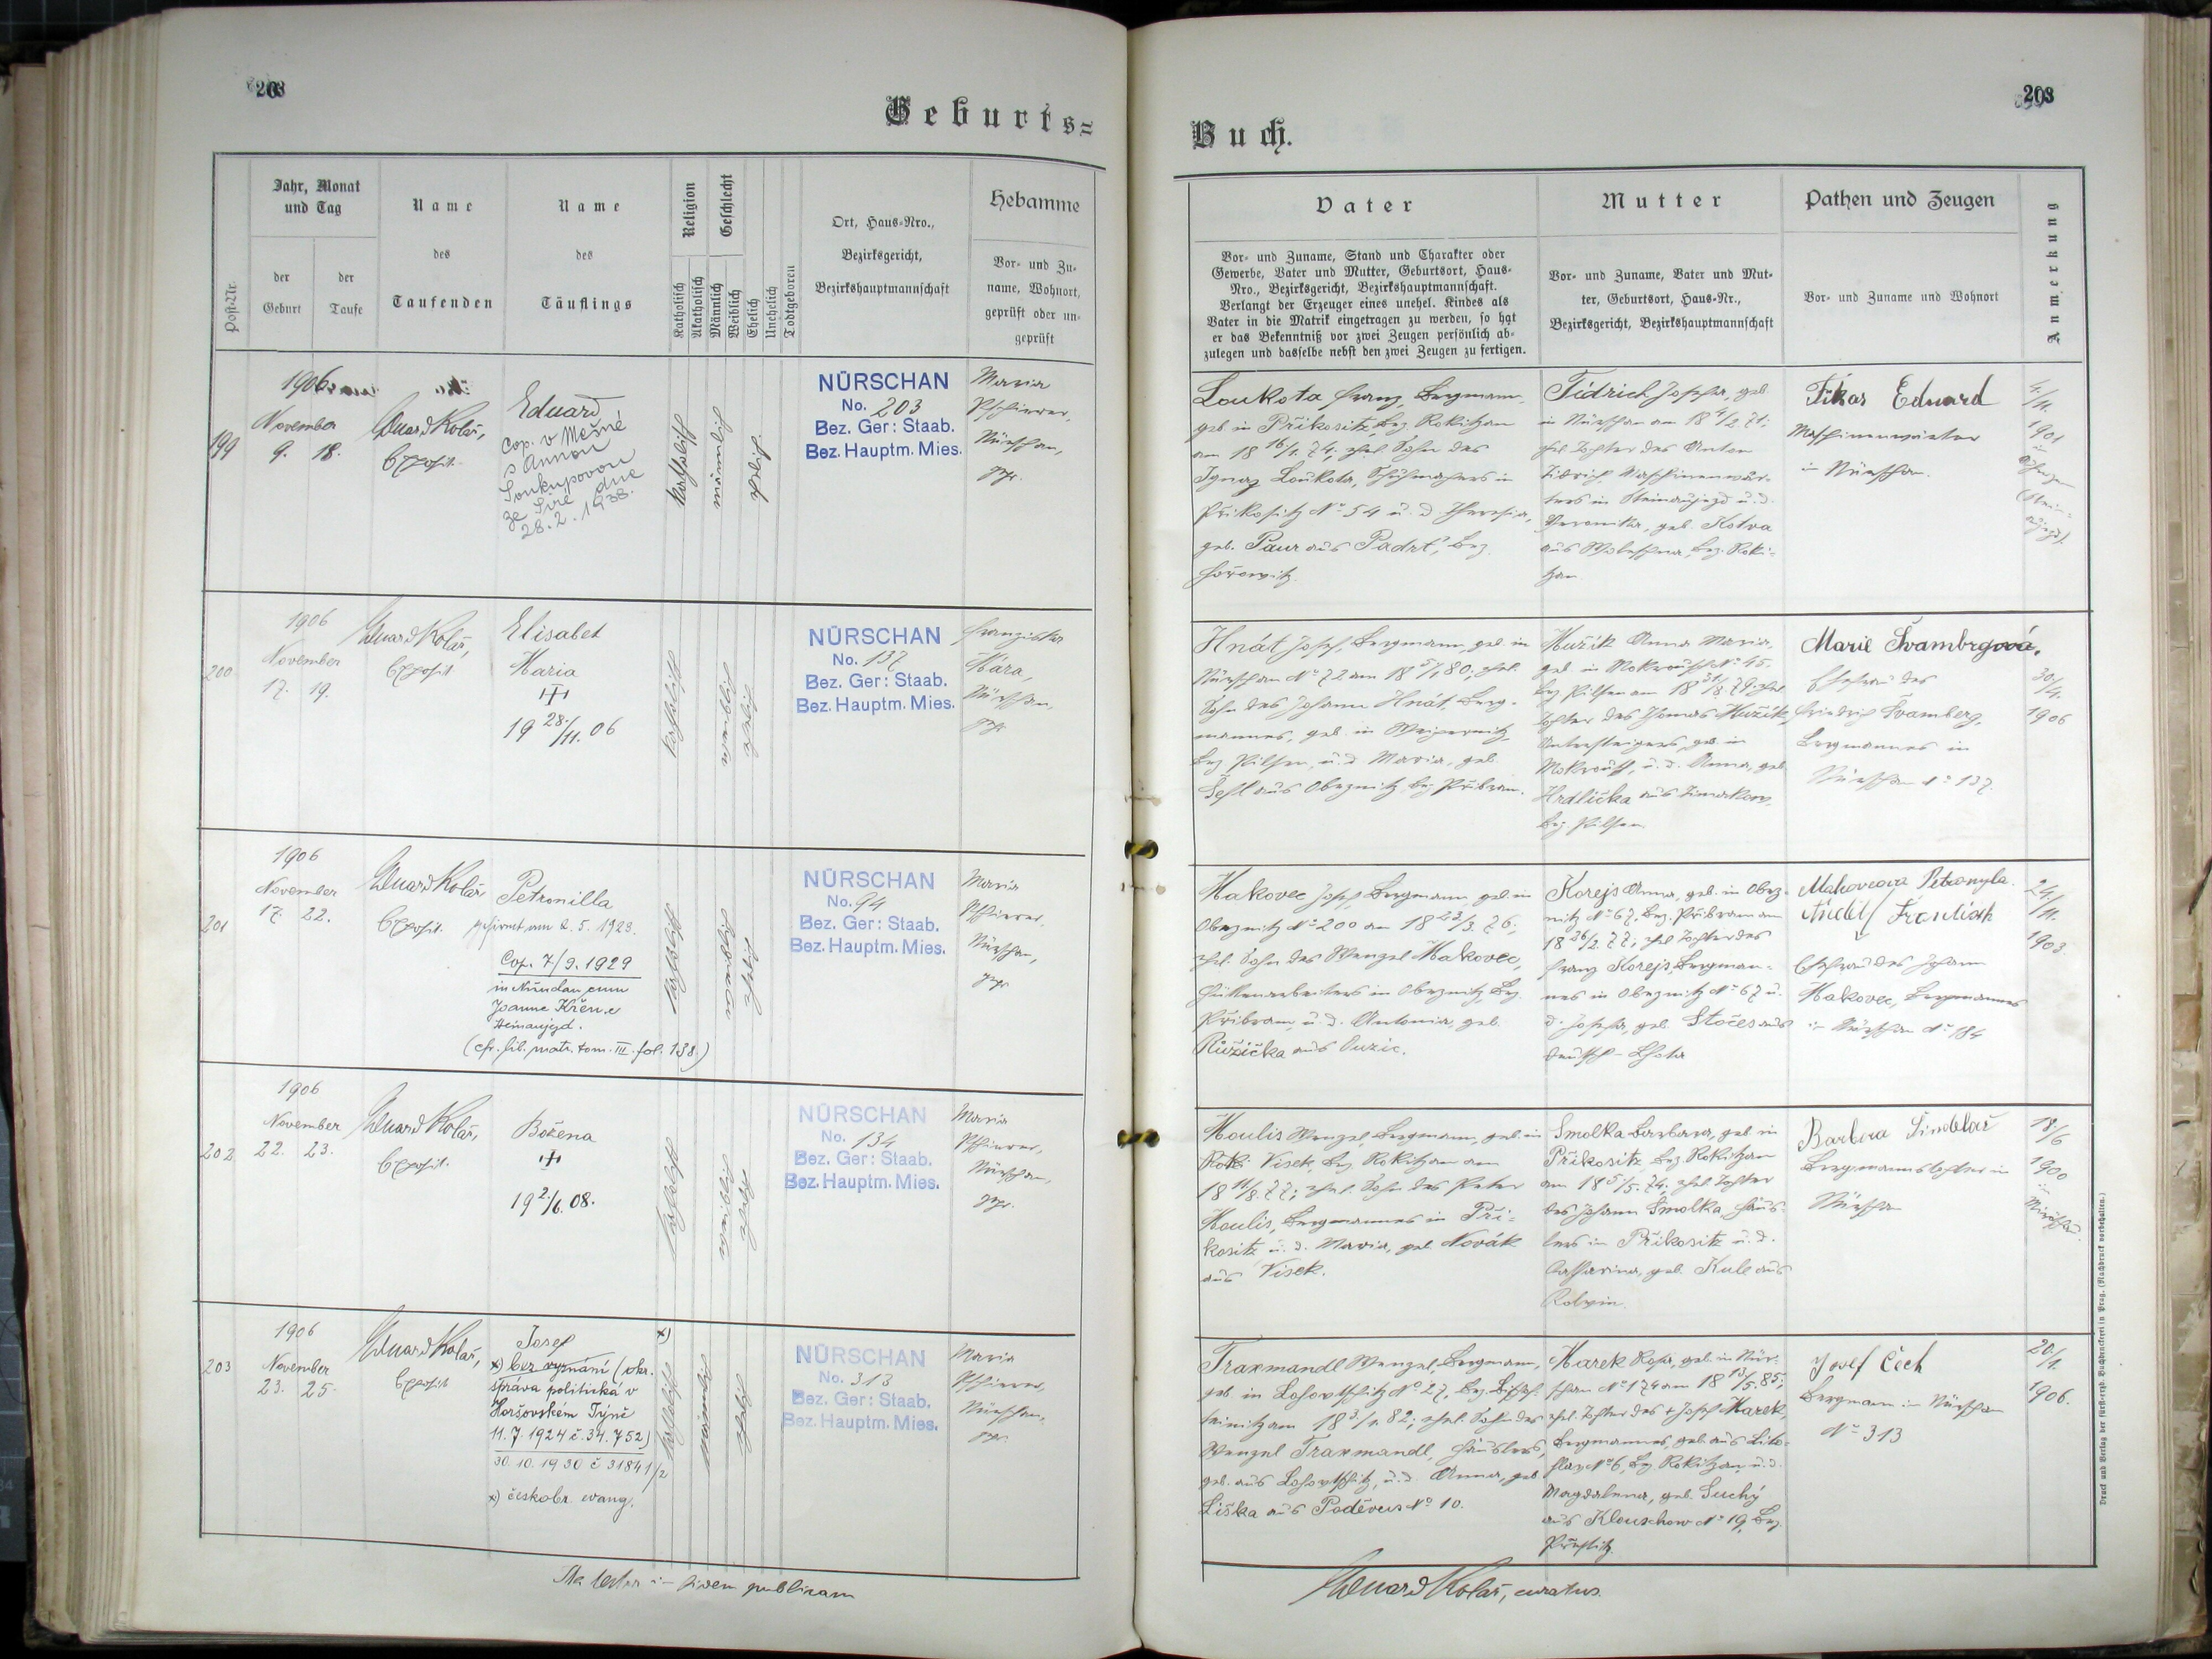 203
Geburts=
Post-Nr.
Jahr, Monat
und Tag
der
Geburt
der
Taufe
Name
des
Taufenden
Name
des
Täuflings
Religion
Katholisch
Akatholisch
Geschlecht
Männlich
Weiblich
Ehelich
Unehelich
Todtgeboren
Ort, Haus-Nro.,
Bezirksgericht,
Bezirkshauptmannschaft
Hebamme
Vor- und Zu-
name, Wohnort,
geprüft oder un-
geprüft
199
1906
November
9. 18.
Eduard Kolář,
Exposit.
Eduard
Cop. v Mešné
s Annou
Soukupovou
ze Siré dne
28.2.1938.
katholisch
männlich
ehelich
NÜRSCHAN
No. 203
Bez. Ger: Staab.
Bez. Hauptm. Mies.
Maria
Nürschan,
gepr.
200
1906
November
17. 19.
Eduard Kolář,
Exposit
Elisabet
Maria
19 28./11. 06
katholisch
weiblich
ehelich
NÜRSCHAN
No. 137
Bez. Ger: Staab.
Bez. Hauptm. Mies.
Franziska
Nürschan,
gepr.
201
1906
November
17. 22.
Eduard Kolář
Exposit.
Petronilla
gefirmt am 2.5.1923.
Cop. 7/9. 1929
in Nürschan cum
Joanne Křen e
Steinaujezd.
(cfr. lib. matr. tom. III. fol. 138.)
katholisch
weiblich
ehelich
NÜRSCHAN
No. 94
Bez. Ger: Staab.
Bez. Hauptm. Mies.
Maria
Nürschan,
gepr.
202
1906
November
22. 23.
Eduard Kolář,
Exposit.
Božena
19 2./6. 08.
katholisch
weiblich
ehelich
NÜRSCHAN
No. 134
Bez. Ger: Staab.
Bez. Hauptm. Mies.
Maria
Nürschan,
gepr.
203
1906
November
23. 25.
Eduard Kolář,
Exposit
Josef
x) bez vyznání (okr.
správa politická v
Horšovském Týně
11.7.1924 č. 34.752)
30.10.1930 č 31841/2
x) českobr. evang.
x)
katholisch
männlich
ehelich
NÜRSCHAN
No. 313
Bez. Ger: Staab.
Bez. Hauptm. Mies.
Maria
Nürschan,
gepr.
fidem publicam
203
Buch.
Vater
Vor- und Zuname, Stand und Charakter oder
Gewerbe, Vater und Mutter, Geburtsort, Haus-
Nro., Bezirksgericht, Bezirkshauptmannschaft.
Verlangt der Erzeuger eines unehel. Kindes als
Vater in die Matrik eingetragen zu werden, so hat
er das Bekenntniß vor zwei Zeugen persönlich ab-
zulegen und dasselbe nebst den zwei Zeugen zu fertigen.
Mutter
Vor- und Zuname, Vater und Mut-
ter, Geburtsort, Haus-Nr.,
Bezirksgericht, Bezirkshauptmannschaft
Pathen und Zeugen
Vor- und Zuname und Wohnort
Anmerkung
Loukota Franz, Bergmann,
geb. in Přikositz, Bez. Rokitzan
am 18 16/1. 74; ehel. Sohn des
Ignaz Loukota, Schuhmachers in
Přikositz No 54 u. d. Theresia,
geb. Paur aus Padrť, Bez.
Hořowitz.
Fidrich Josefa, geb.
in Nürschan am 18 4/2 71;
ehel. Tochter des Anton
Fidrich, Maschinenwär-
ters in Steinaujezd u. d.
Veronika, geb. Kotva
aus Woleschna, Bez. Roki-
tzan
Fikar Eduard
Maschinenwärter
in Nürschan.
4/11.
1901
Hnát Josef, Bergmann, geb. in
Nürschan No 72 am 18 5/1 80; ehel.
Sohn des Johann Hnát, Berg-
mannes, geb. in Weipernitz,
Bez Pilsen, u. d. Maria, geb.
Šefl aus Obeznitz, Bez Přibram.
Mužík Anna Maria,
geb. in Mokrausch No 45.
Bez Pilsen am 18 31/8. 79; ehel
Tochter des Thomas Mužík,
Untersteigers, geb. in
Mokrausch, u. d. Anna, geb.
Hrdlička aus
Bez. Pilsen
Marie Švambrgová,
Ehefrau des
Friedrich Švamberg,
Bergmannes in
Nürschan No 137.
30/4.
1906
Makovec Josef, Bergmann, geb. in
Obeznitz No 200 am 18 23/3. 76;
ehel. Sohn des Wenzel Makovec,
Hüttenarbeiters in Obeznitz, Bez.
Přibram, u. d. Antonia, geb.
Růžička aus Duzic.
Korejs Anna, geb. in Obez-
nitz No 67, Bez. Přibram am
18 26/2. 77; ehel Tochter des
Franz Korejs, Bergman-
nes in Obeznitz No 67 u.
d. Josefa, geb. Stočes aus
Deutsch-Lhota
Makovcova Petronyla
Anděl František
Ehefrau des Johann
Makovec, Bergmannes
in Nürschan No 184
24/11.
1903.
Moulis Wenzel, Bergmann, geb. in
Visek, Bez Rokitzan am
18 11/8. 77; ehel. Sohn des Peter
Moulis, Bergmannes in Při-
kositz u. d. Maria, geb. Novák
aus Visek.
Smolka Barbara, geb. in
Přikositz, Bez Rokitzan
am 18 5/5. 74; ehel Tochter
des Johann Smolka, Häus-
lers in Přikositz u. d.
Catharina, geb. Kule aus
Barbora Šindelař
Bergmannstochter in
Nürschan
18/6
1900
in
Traxmandl Wenzel, Bergmann,
geb. in Lohowtschitz No 27, Bez. Bischof-
teinitz am 18 3/1. 82; ehel. Sohn des
Wenzel Traxmandl, Häuslers,
geb. aus Lohowtschitz, u. d. Anna, geb
Liška aus Poděvous No 10.
Marek Rosa, geb. in Nür-
schan No 174 am 18 13/5. 85;
ehel. Tochter des + Josef Marek,
Bergmannes, geb. aus Lito-
hlav No 6, Bez Rokitzan u. d.
Magdalena, geb. Suchý
aus Klouschow No 19, Bez.
Přestitz.
Josef Čech
Bergmann in Nürschan
No 313
20/1.
1906.
Eduard Kolář, curatus.
Druck und Verlag der fürst-erzb. Buchdruckerei in Prag. (Nachdruck vorbehalten.)